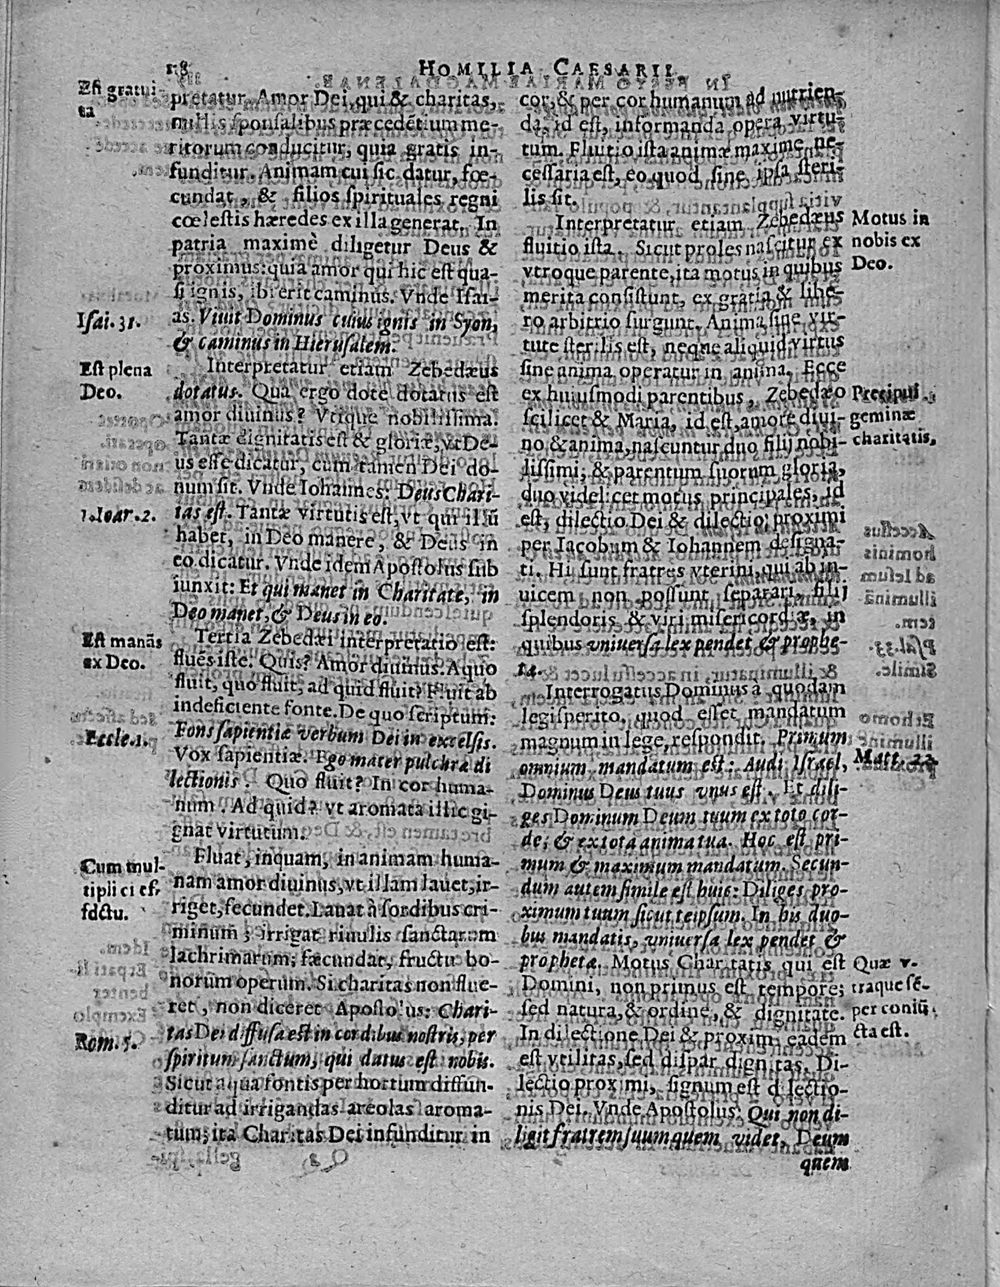 18
HOMILIA CAESARII.
Est gratui-
ta
pretatur. Amor Dei, qui & charitas,
nullis sponsalibus præcedẽtium me-
ritorum conducitur, quia gratis in-
funditur. Animam cui sic datur, fœ-
cundat, & filios spirituales regni
cœlestis hæredes ex illa generat. In
patria maximè diligetur Deus &
proximus: quia amor qui hic est qua-
si ignis, ibi erit caminus. Vnde Isai-
Isai. 31.
as. Viuit Dominus cuius ignis in Syon,
& caminus in Hierusalem.
Est plena
Deo.
Interpretatur etiam Zebedæus
dotatus. Qua ergo dote dotatus est
amor diuinus? Vtique nobilissima.
Tantæ dignitatis est & gloriæ, vt De-
us esse dicatur, cum tamen Dei do-
num sit. Vnde Iohannes: Deus Chari-
1. Ioar. 2.
tas est. Tantæ virtutis est, vt qui illũ
habet, in Deo manere, & Deus in
eo dicatur. Vnde idem Apostolus sub
iunxit: Et qui manet in Charitate, in
Deo manet, & Deus in eo.
Est manãs
ex Deo.
Tertia Zebedæi interpretatio est:
fluẽs iste. Quis? Amor diuinus. A quo
fluit, quo fluit, ad quid fluit? Fluit ab
indeficiente fonte. De quo scriptum:
Eccle. 1.
Fons sapientiæ verbum Dei in excelsis.
Vox sapientiæ. Ego mater pulchræ di
lectionis. Quo fluit? In cor huma-
num. Ad quid? vt aromata illic gi-
gnat virtutum.
Cum mul-
tipli ci ef-
fdctu.
Fluat, inquam, in animam huma-
nam amor diuinus, vt illam lauet, ir-
riget, fecundet. Lauat à sordibus cri-
minum; irrigat riuulis sanctarum
lachrimarum; fæcundat, fructu bo-
norum operum. Si charitas non flue-
ret, non diceret Apostolus: Chari-
Rom. 5.
tas Dei diffusa est in cordibus nostris, per
spiritum sanctum, qui datus est nobis.
Sicut aqua fontis per hortum diffun-
ditur ad irrigandas areolas aroma-
tum; ita Charitas Dei infunditur in
cor, & per cor humanum ad nutrien-
da, id est, informanda opera virtu-
tum. Fluitio ista animæ maxime ne-
cessaria est, eo quod sine ipsa steri-
lis sit.
Motus in
nobis ex
Deo.
Interpretatur etiam Zebedæus
fluitio ista. Sicut proles nascitur ex
vtroque parente, ita motus in quibus
merita consistunt, ex gratia & libe-
ro arbitrio surgunt. Anima sine vir-
tute sterilis est, neque aliquid virtus
sine anima operatur in anima. Ecce
Precipui
geminæ
charitatis,
ex huiusmodi parentibus, Zebedæo
scilicet & Maria, id est, amore diui-
no & anima, nascuntur duo filij nobi-
lissimi, & parentum suorum gloria,
duo videlicet motus principales, id
est, dilectio Dei & dilectio; proximi
per Iacobum & Iohannem designa-
ti. Hi sunt fratres vterini, qui ab in-
uicem non possunt separari, filij
splendoris & viri misericordiæ, in
quibus vniuersa lex pendet & prophe-
tæ.
Interrogatus Dominus a quodam
legisperito, quod esset mandatum
magnum in lege, respondit. Primum
Matt. 22.
omnium mandatum est: Audi Israel,
Dominus Deus tuus vnus est. Et dili-
ges Dominum Deum tuum ex toto cor-
de; & ex tota anima tua. Hoc est pri-
mum & maximum mandatum. Secun-
dum autem simile est huic: Diliges pro-
ximum tuum sicut teipsum. In his duo-
bus mandatis, vniuersa lex pendet &
prophetæ. Motus Charitatis qui est
Quæ v-
traque sẽ-
per coniũ,
cta est.
Domini, non primus est tempore;
sed natura, & ordine, & dignitate.
In dilectione Dei & proximi eadem
est vtilitas, sed dispar dignitas. Di-
lectio proximi, signum est dilectio-
nis Dei. Vnde Apostolus: Qui non di-
ligit fratrem suum quem videt, Deum
quem